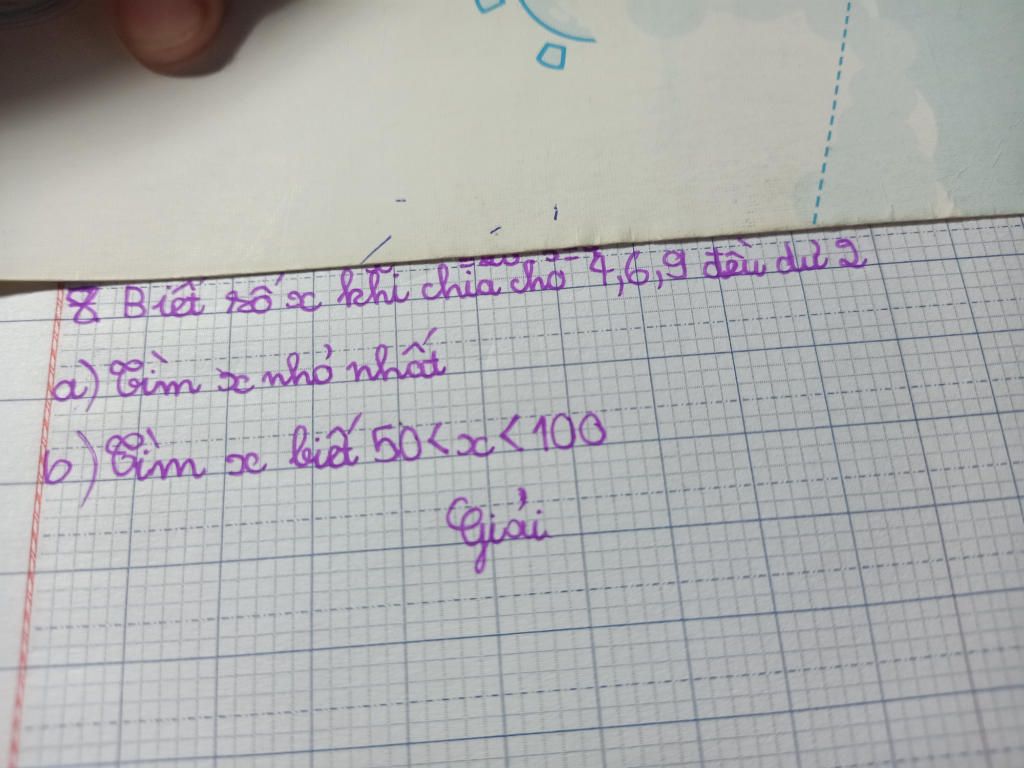 8 Biết số x khi chia cho 4, 6, 9 đều dư 2
a) Tìm x nhỏ nhất
b) Tìm x biết 50 < x < 100
Giải